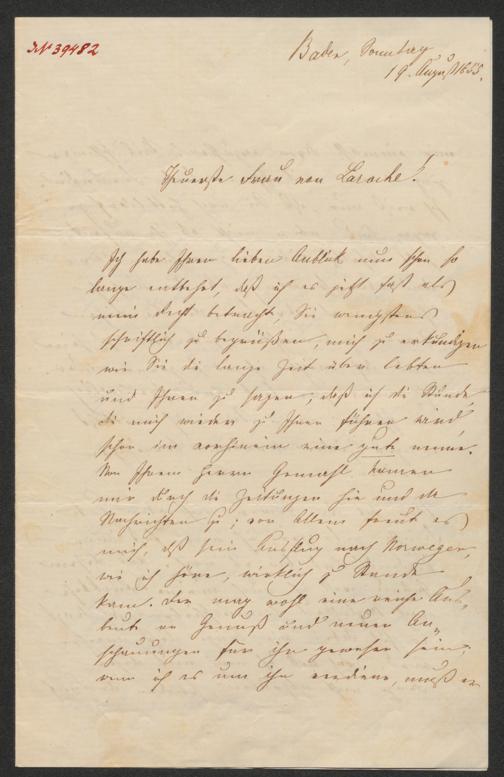 N 39482
Baden, Sonntag
19. August 1855.
Theuerste Frau von Laroche!
Ich habe Ihren lieben Anblick nun schon so
lange entbehrt, daß ich es jetzt fast als
mein Recht betrachte, Sie wenigstens
schriftlich zu begrüßen, mich zu erkundigen
wie Sie die lange Zeit über lebten
und Ihnen zu sagen, daß ich die Stunde,
die mich wieder zu Ihnen führen wird,
schon im vorhinein eine gute nenne.
Von Ihrem Herrn Gemahl kamen
mir durch die Zeitungen hie und da
Nachrichten zu; vor Allem freut es
mich, daß sein Ausflug nach Norwegen,
wie ich höre, wirklich zu Stande
kam. Der mag wohl eine reiche Aus-
beute an Genuß und neuen An-
schauungen für ihn gewesen sein;
wenn ich es um ihn verdiene, muß er